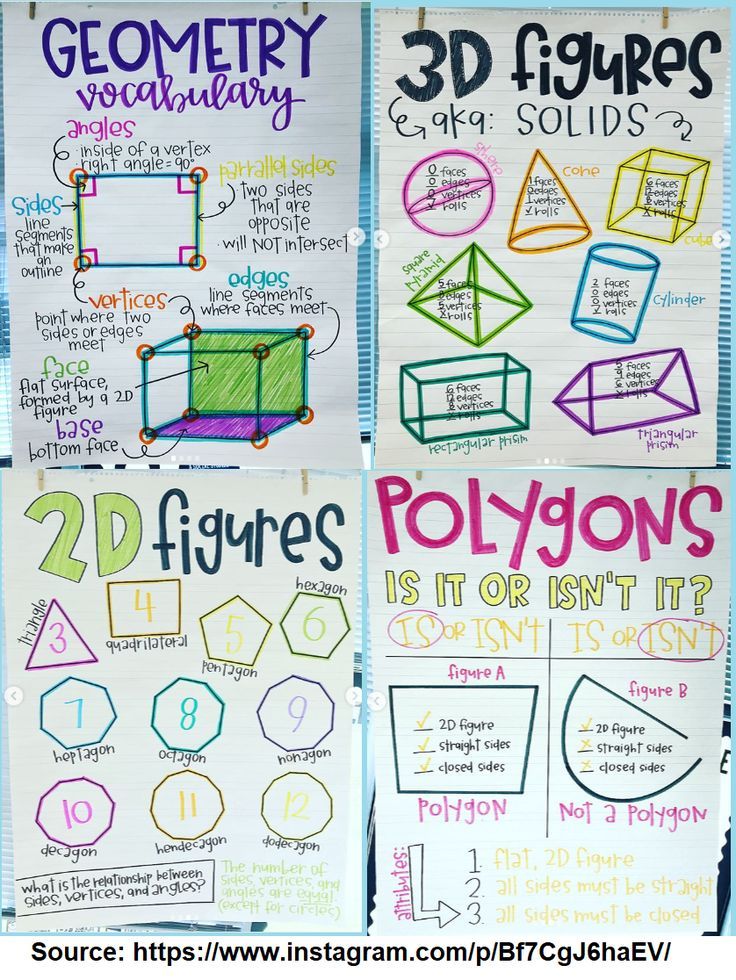 GEOMETRY
vocabulary
angles
· inside of a vertex
· right angle = 90°
parrallel sides
· two sides
that are
opposite
· will NOT intersect
sides
line
segments
that make
an
outline
vertices
point where two
sides or edges
meet
edges
line segments
where faces meet
face
flat surface,
formed by a 2D
figure
base
bottom face
3D figures
aka: SOLIDS
sphere
0 faces
0 edges
0 vertices
✓ rolls
cone
1 faces
0 edges
1 vertices
✓ rolls
cube
6 faces
12 edges
8 vertices
x rolls
square
pyramid
5 faces
8 edges
5 vertices
x rolls
cylinder
2 faces
0 edges
0 vertices
✓ rolls
rectangular prisim
6 faces
12 edges
8 vertices
x rolls
triangular
prisim
5 faces
9 edges
6 vertices
x rolls
2D figures
triangle
3
4
quadrilateral
5
pentagon
hexagon
6
7
heptagon
8
octagon
9
nonagon
10
decagon
11
hendecagon
12
dodecagon
what is the relationship between
sides, vertices, and angles?
The number of
sides, vertices, and
angles are equal.
(except for circles)
POLYGONS
IS IT OR ISN'T IT?
IS OR ISN'T
IS OR ISN'T
figure A
✓ 2D figure
✓ straight sides
✓ closed sides
POLYGON
figure B
✓ 2D figure
x straight sides
x closed sides
Not a POLYGON
attributes:
1. flat, 2D figure
2. all sides must be straight
3. all sides must be closed
Source: https://www.instagram.com/p/Bf7CgJ6haEV/